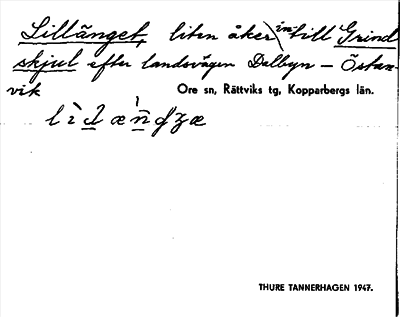 Lillänget, liten åker intill Grind
skjul efter landsvägen Dalbyn – Östan-
vik
Ore sn, Rättviks tg, Kopparbergs län.
THURE TANNERHAGEN 1947.